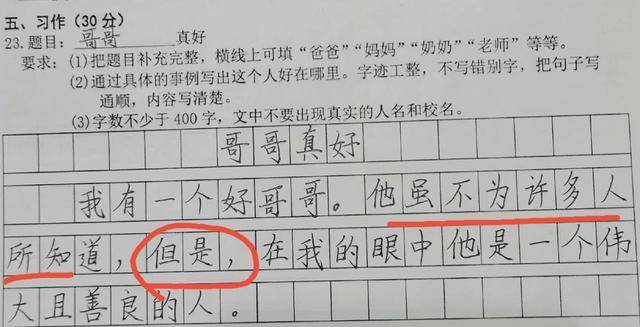 五、习作（30分）
23.题目：哥哥真好
要求：(1)把题目补充完整，横线上可填“爸爸”“妈妈”“奶奶”“老师”等等。
(2)通过具体的事例写出这个人好在哪里。字迹工整，不写错别字，把句子写
通顺，内容写清楚。
(3)字数不少于400字，文中不要出现真实的人名和校名。
哥哥真好
我有一个好哥哥。他虽不为许多人
所知道，但是，在我的眼中他是一个伟
大且善良的人。